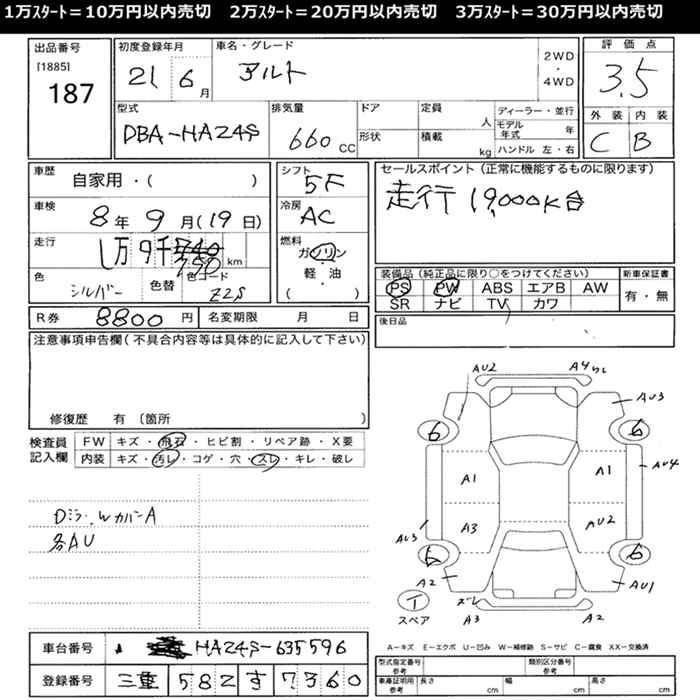 1万ｽﾀｰﾄ＝10万円以内売切　2万ｽﾀｰﾄ＝20万円以内売切　3万ｽﾀｰﾄ＝30万円以内売切
出品番号
[1885]
187
初度登録年月
21 6月
車名・グレード
アルト
2WD
・
4WD
評価点
3.5
外装 内装
C B
型式
DBA-HA24S
排気量
660 CC
ドア
形状
定員 人
積載 kg
ディーラー・並行
モデル年式 年
ハンドル 左・右
車歴
自家用・( )
車検
8年 9月(19日)
走行
1万9千 km
色
シルバー
色替
色コード
Z2S
シフト
5F
冷房
AC
燃料
ガソリン
・
軽・油
( )
セールスポイント (正常に機能するものに限ります)
走行 19,000K台
装備品(純正品に限り○をつけてください)
PS PW ABS エアB AW
SR ナビ TV カワ
新車保証書
有・無
後日品
R券 8800円
名変期限 月 日
注意事項申告欄(不具合内容等は具体的に記入して下さい)
修復歴 有〔箇所 〕
検査員
記入欄
FW キズ・飛石・ヒビ割・リペア跡・X要
内装 キズ・汚レ・コゲ・穴・スレ・キレ・破レ
Dミラー、WカバーA
各AU
AU2 A4
AU3
6 6
AU4
A1 A1
A3 AU2
AU3
6 6
A2 AU1
イ
スペア
ズレ
A3 A2
車台番号 HA24S-635596
登録番号 三重 582 す 7360
A－キズ E－エクボ U－凹み W－補修跡 S－サビ C－腐食 XX－交換済
型式指定番号
参考
類別区分番号
参考
車庫証明用
参考
長さ cm 幅 cm 高さ cm